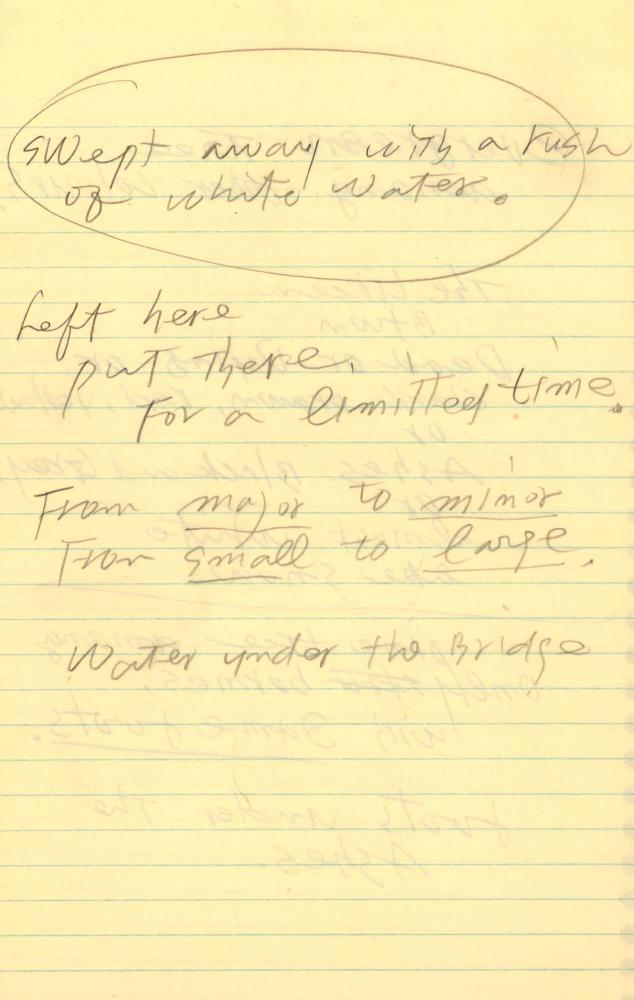 Swept away with a rush
of white water.
Left here
put there.
For a limitted time.
From major to minor
From small to large.
Water under the Bridge